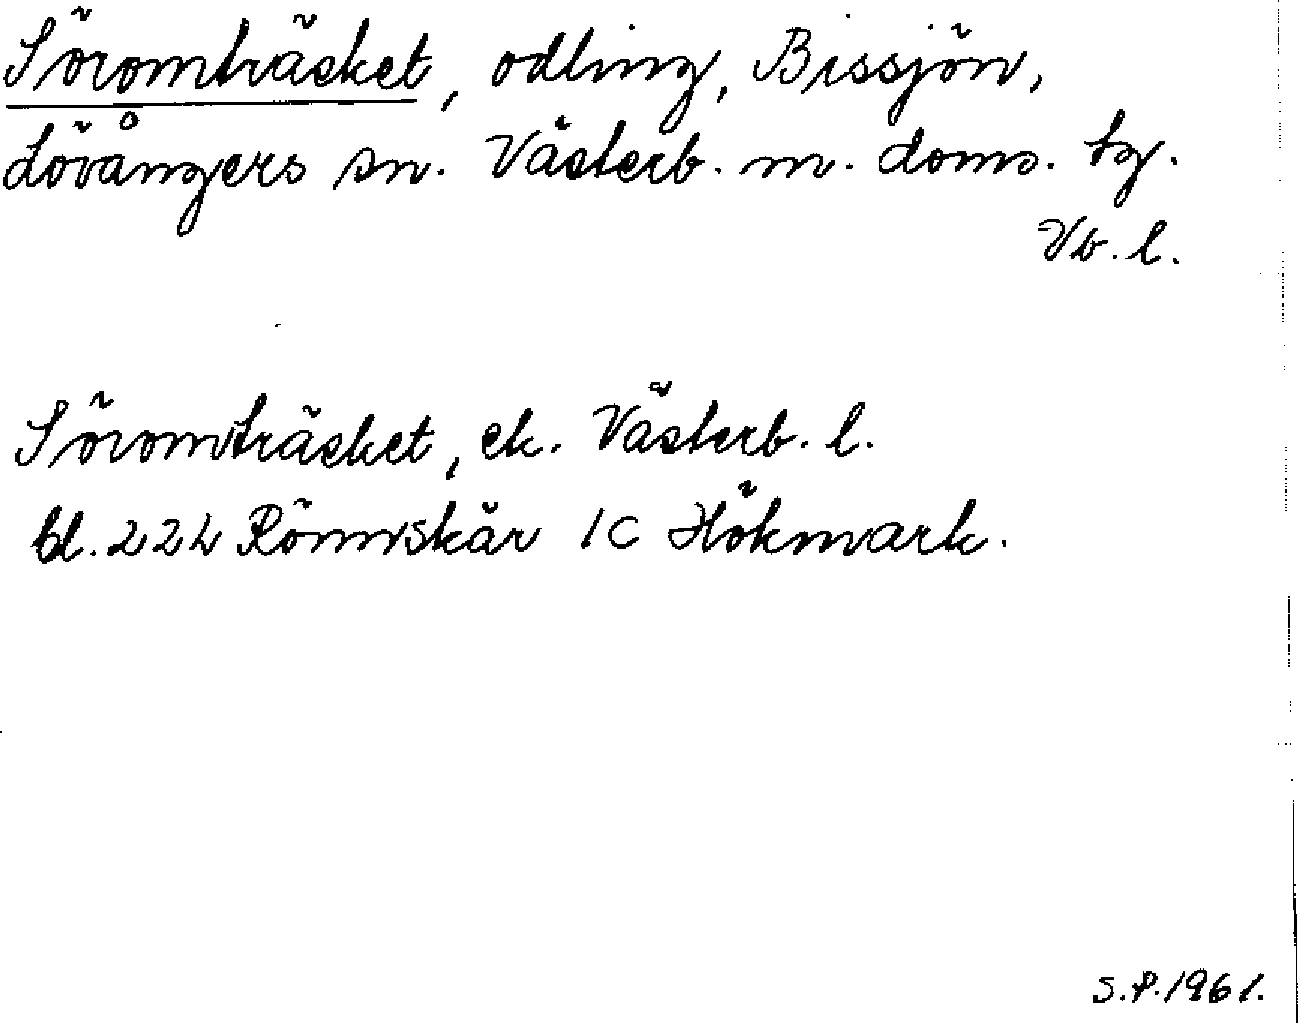 Söromträsket, odling, Bissjön,
Lövångers sn. Västerb. m. doms. tg.
Vb. l.
Söromträsket, ek. Västerb. l.
bl. 224 Rönnskär 1c Hökmark.
S.P. 1961.